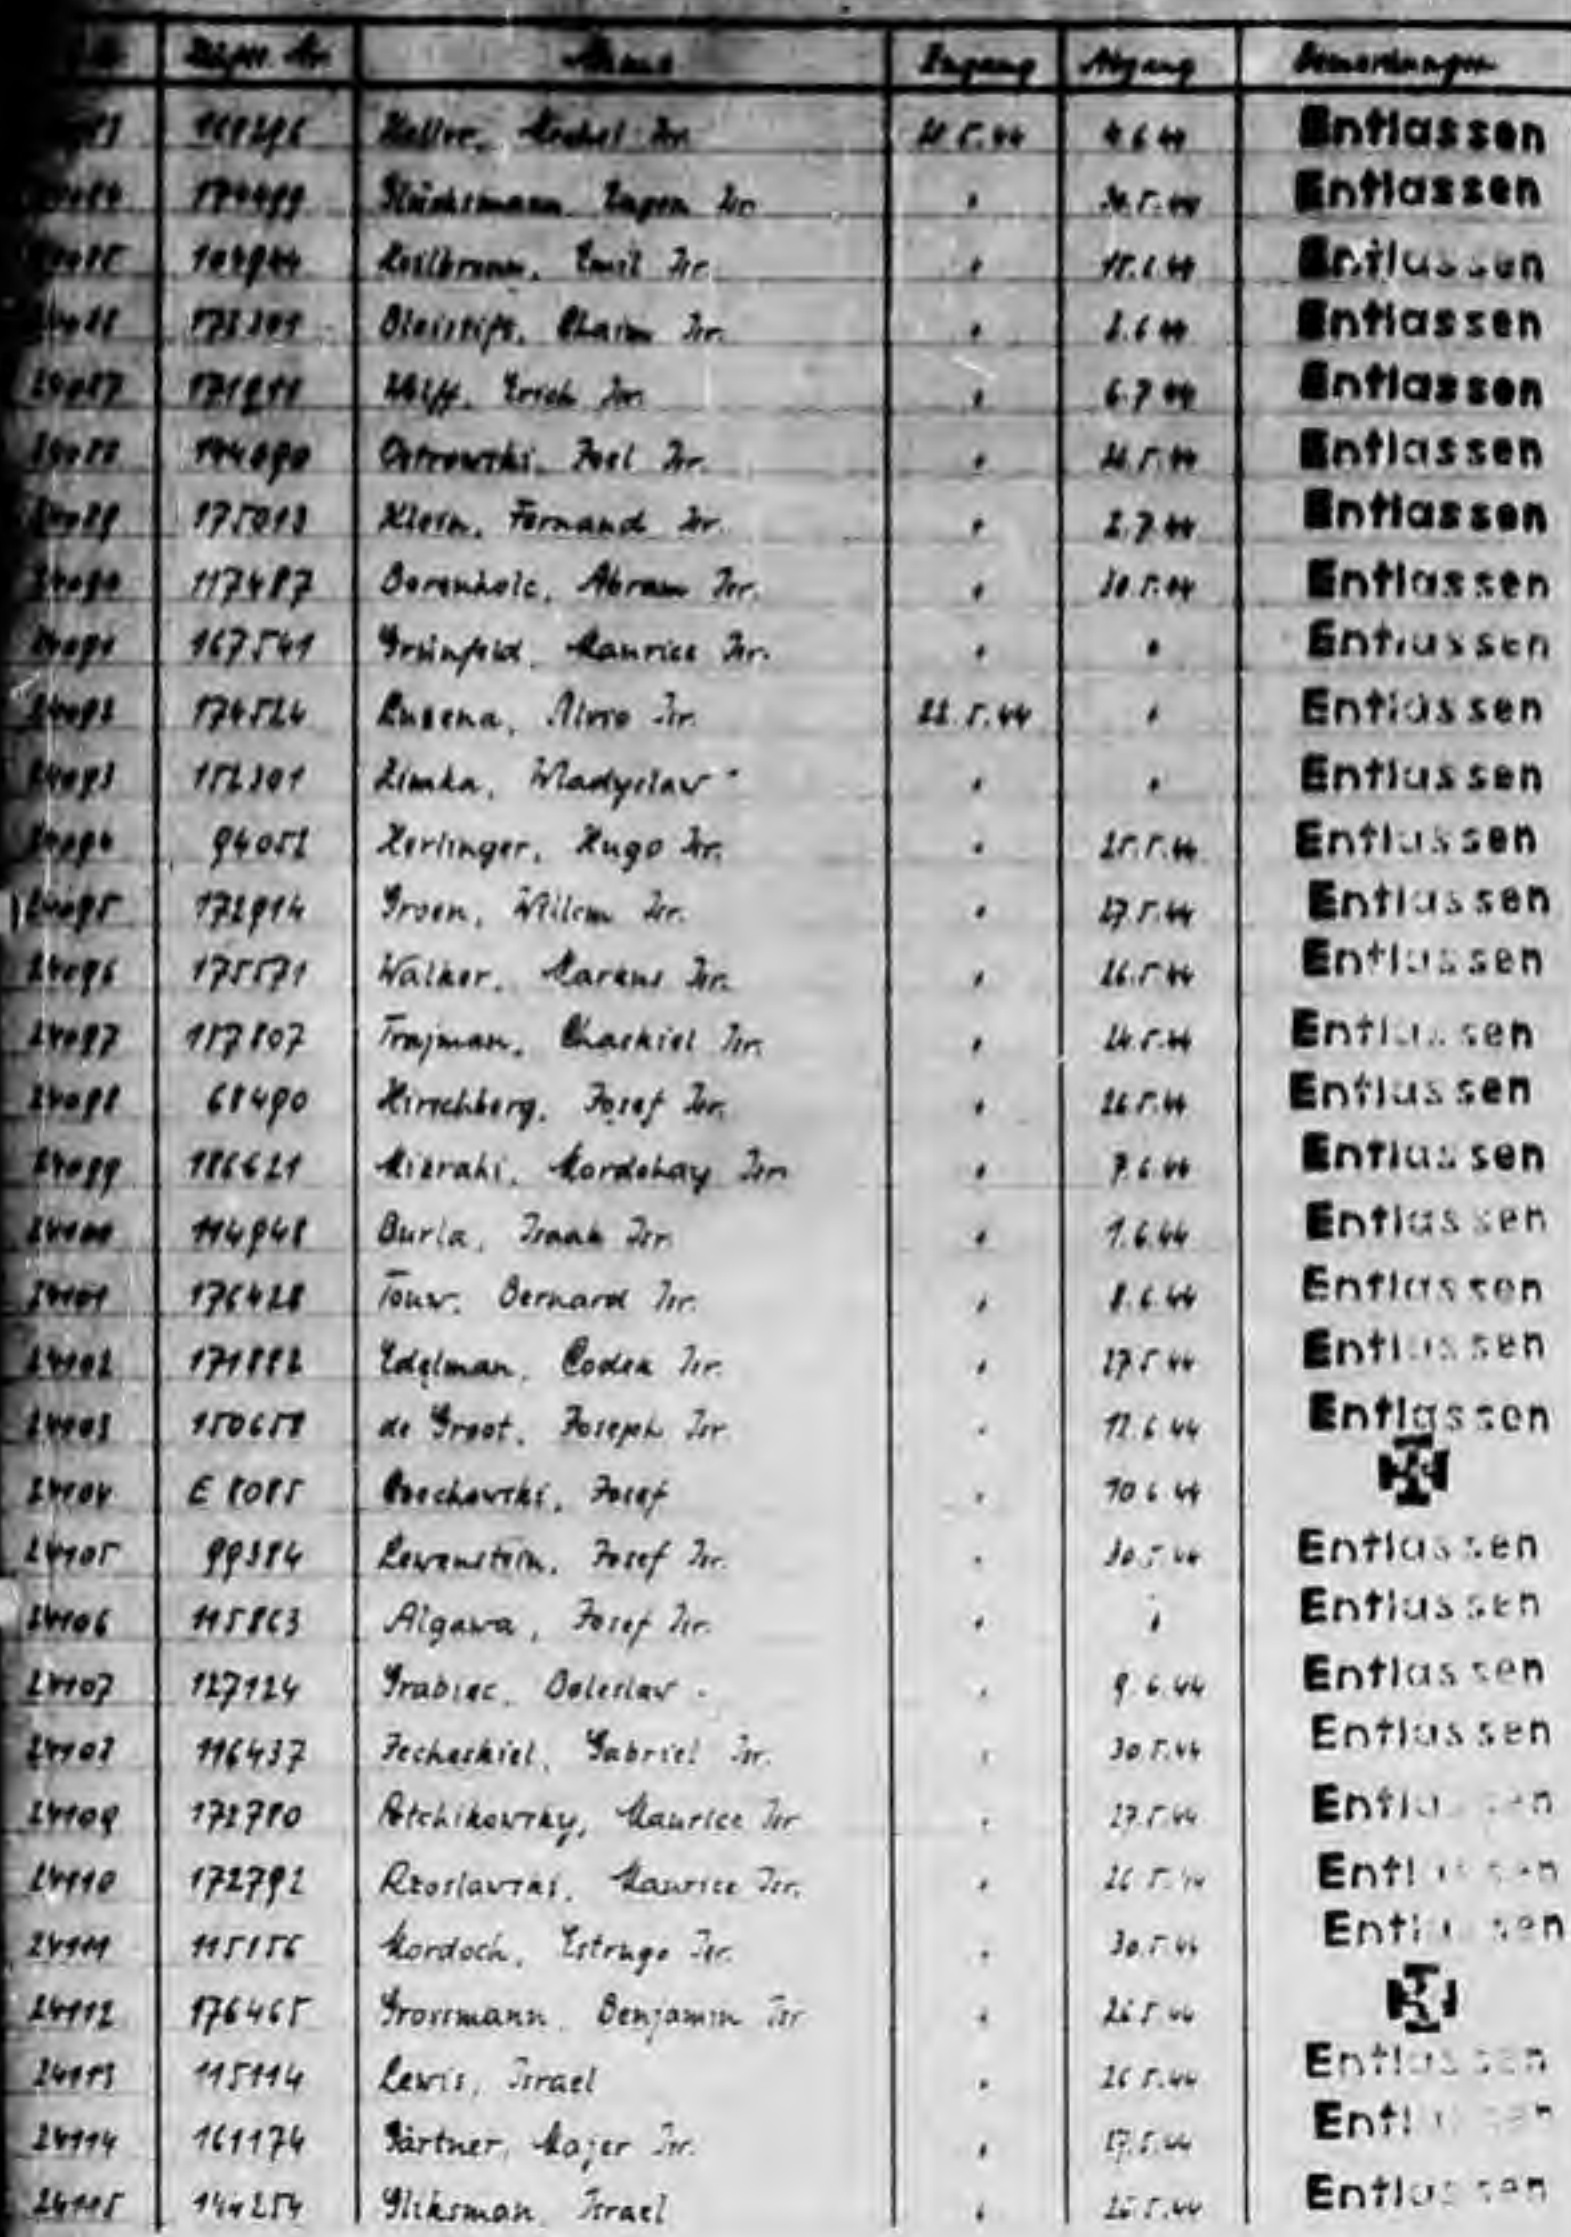 Häftl. Nr. Name Zugang Abgang Bemerkungen
Heller, Mechel Isr. 4.6.44 Entlassen
174499 Glücksmann, Eugen Isr. " 30.5.44 Entlassen
104944 Heilbronn, Emil Isr. " Entlassen
Bleistift, Chaim Isr. " 2.6.44 Entlassen
24087 Wolff, Erich Isr. " 6.7.44 Entlassen
24088 144090 Ostrowski, Joel Isr. " Entlassen
24089 175013 Klein, Fernand Isr. " 2.7.44 Entlassen
24090 117487 Borenholc, Abram Isr. " 30.5.44 Entlassen
24091 167541 Grünfeld, Maurice Isr. " " Entlassen
24092 174524 Luzena, Nirso Isr. 22.5.44 " Entlassen
24093 152301 Zimka, Wladyslaw " " Entlassen
24094 94052 Herlinger, Hugo Isr. " 25.5.44 Entlassen
24095 172914 Groen, Willem Isr. " 27.5.44 Entlassen
24096 175571 Walker, Markus Isr. " 26.5.44 Entlassen
24097 157807 Trajman, Chaskiel Isr. " 24.5.44 Entlassen
24098 68490 Hirschberg, Josef Isr. " 26.5.44 Entlassen
24099 186621 Mizrahi, Mordohay Isr. " 7.6.44 Entlassen
24100 114948 Burla, Isaak Isr. " 1.6.44 Entlassen
24101 176428 Touw, Bernard Isr. " 8.6.44 Entlassen
24102 171882 Edelman, Codek Isr. " 27.5.44 Entlassen
24103 150658 de Groot, Joseph Isr. " 12.6.44 Entlassen
24104 E 8085 Orechowski, Josef " 10.6.44
24105 99384 Lewenstein, Josef Isr. " 30.5.44 Entlassen
24106 115863 Algawa, Josef Isr. " " Entlassen
24107 127124 Grabiec, Boleslaw " 9.6.44 Entlassen
24108 116437 Jecheskiel, Gabriel Isr. " 30.5.44 Entlassen
24109 172780 Potchikowsky, Maurice Isr. " 27.5.44 Entlassen
24110 172792 Rzoslawski, Maurice Isr. " 26.5.44 Entlassen
24111 115156 Mordoch, Estrugo Isr. " 30.5.44 Entlassen
24112 176465 Grossmann, Benjamin Isr. " 26.5.44
24113 115114 Lewis, Israel " 26.5.44 Entlassen
24114 161174 Gärtner, Majer Isr. " 27.5.44 Entlassen
24115 144254 Gliksman, Israel " 26.5.44 Entlassen